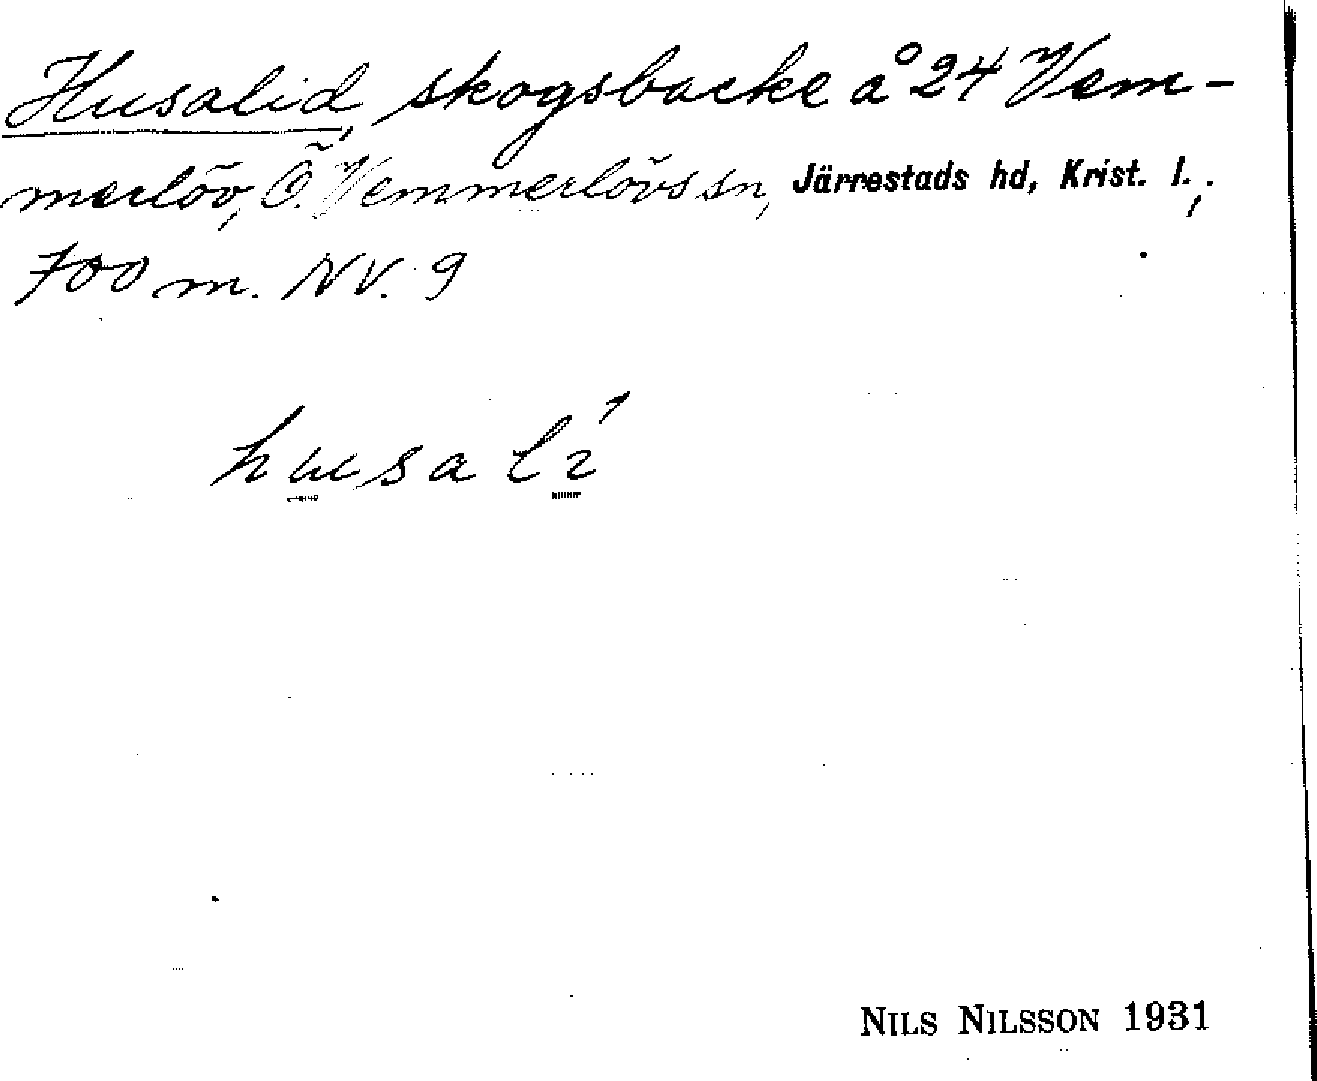 Husalid, skogsbacke å 24 Vem-
merlöv, Ö. Vemmerlövs sn, Järrestads hd, Krist. l.,
700 m. NV. 9
husalí
NILS NILSSON 1931